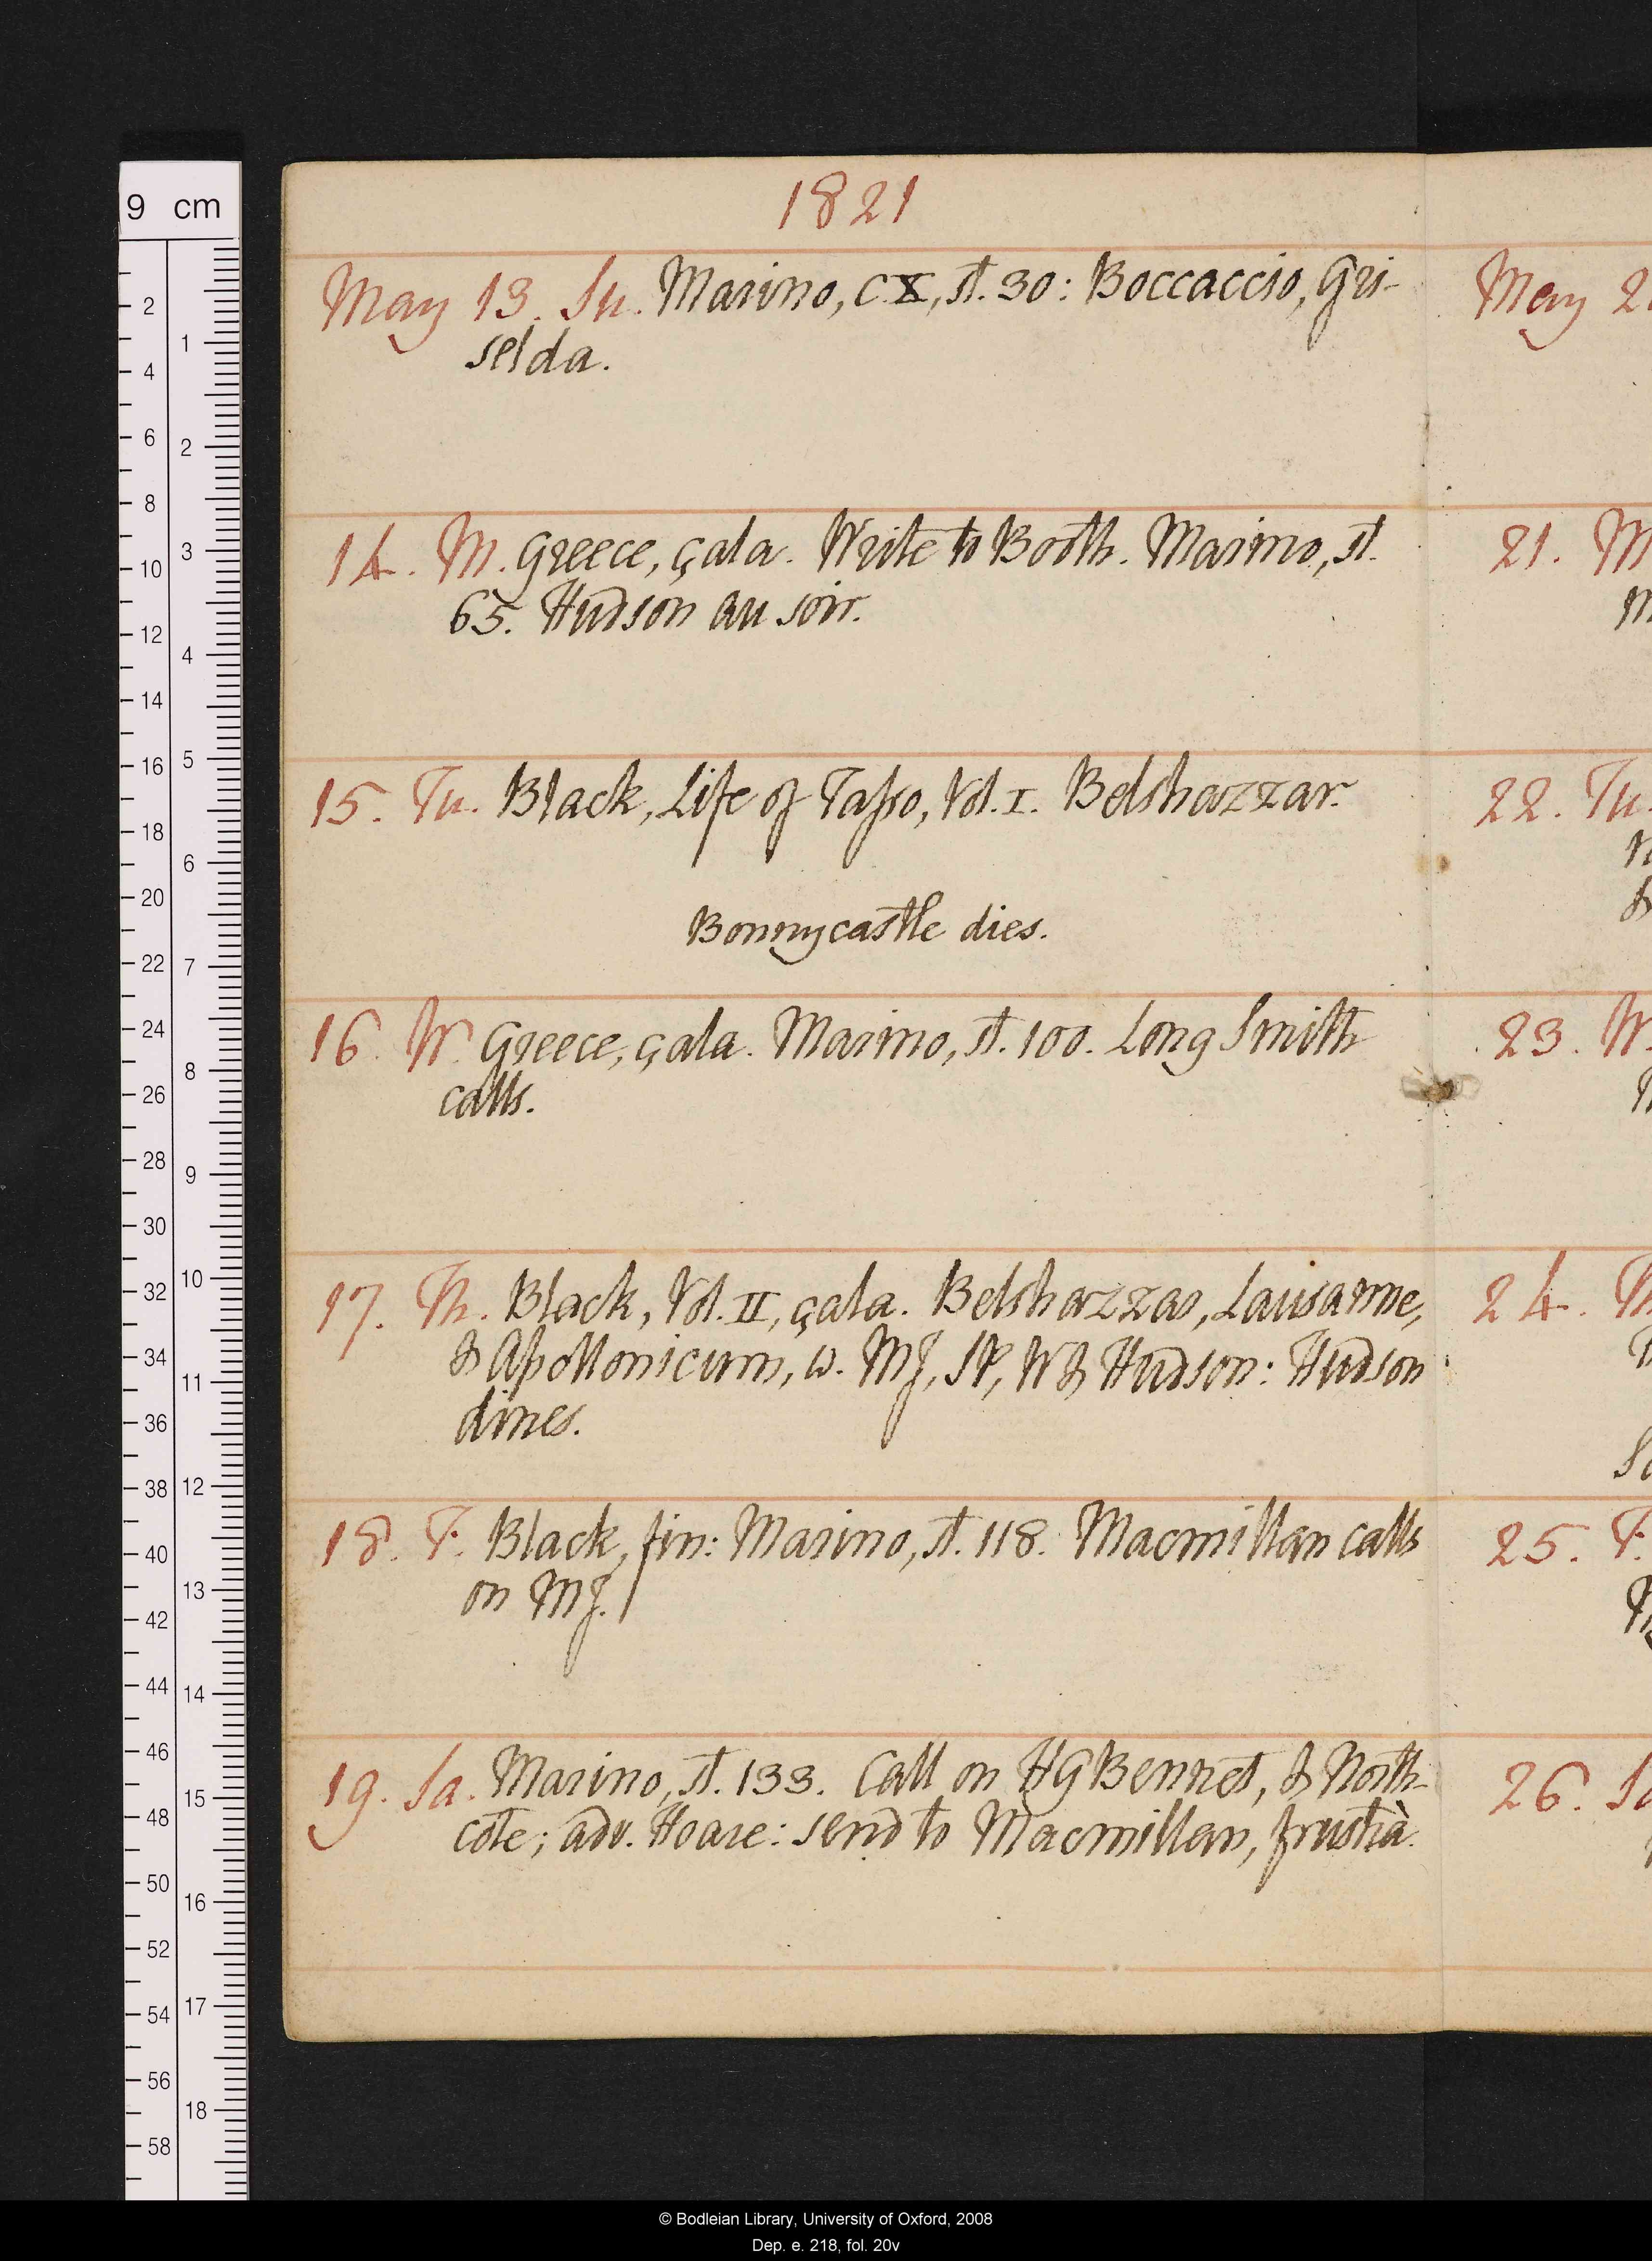 1821
May 13. Su. Marino, C.X, st. 30: Boccaccio, Gri-
selda.
14. M. Greece, çala. Write to Booth. Marino, st.
65. Hudson au soir.
15. Tu. Black, Life of Tasso, Vol. I. Belshazzar.
Bonnycastle dies.
16. W. Greece, çala. Marino, st. 100. Long Smith
calls.
17. Th. Black, Vol. II, çala. Belshazzar, Lausanne,
& Apollonicum, w. MJ, SP, W & Hudson: Hudson
dines.
18. F. Black, fin: Marino, st. 118. Macmillan calls
on MJ.
19. Sa. Marino, st. 133. Call on HGBennet, & North-
cote; adv. Hoare: send to Macmillan, frustrà.
May 2
21. M
22. Tu.
23. W.
24. Th
25. F.
26. Sa
9 cm
2 4 6 8 10 12 14 16 18 20 22 24 26 28 30 32 34 36 38 40 42 44 46 48 50 52 54 56 58
1 2 3 4 5 6 7 8 9 10 11 12 13 14 15 16 17 18
© Bodleian Library, University of Oxford, 2008
Dep. e. 218, fol. 20v